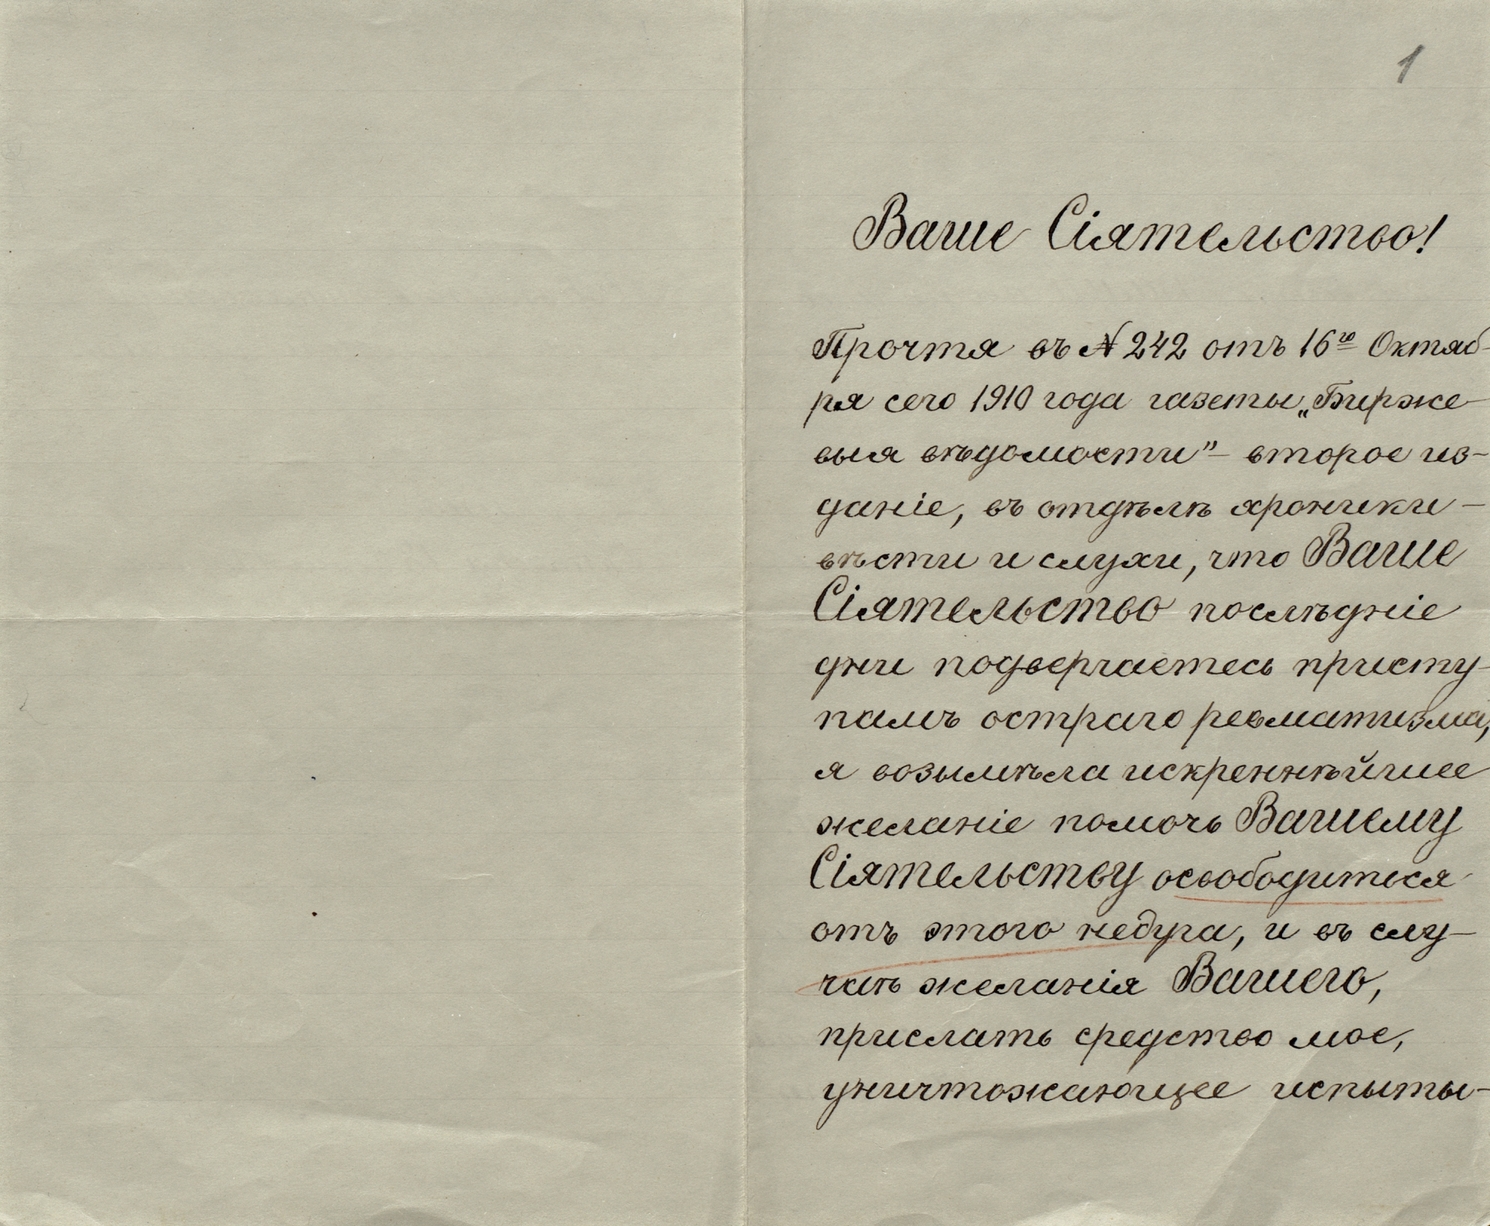 1
Ваше Сіятельство!
Прочтя въ № 242 отъ 16го Октяб-
ря сего 1910 года газеты „Бирже-
выя вѣдомости"- второе из-
даніе, въ отдѣлѣ хроники -
вѣсти и слухи, что Ваше
Сіятельство послѣдніе
дни подвергаетесь присту-
памъ остраго ревматизма,
я возымѣла искреннѣйшее
желаніе помочь Вашему
Сіятельству освободиться
отъ этого недуга, и въ слу-
чаѣ желанія Вашего,
прислать средство мое,
уничтожающее испыты-